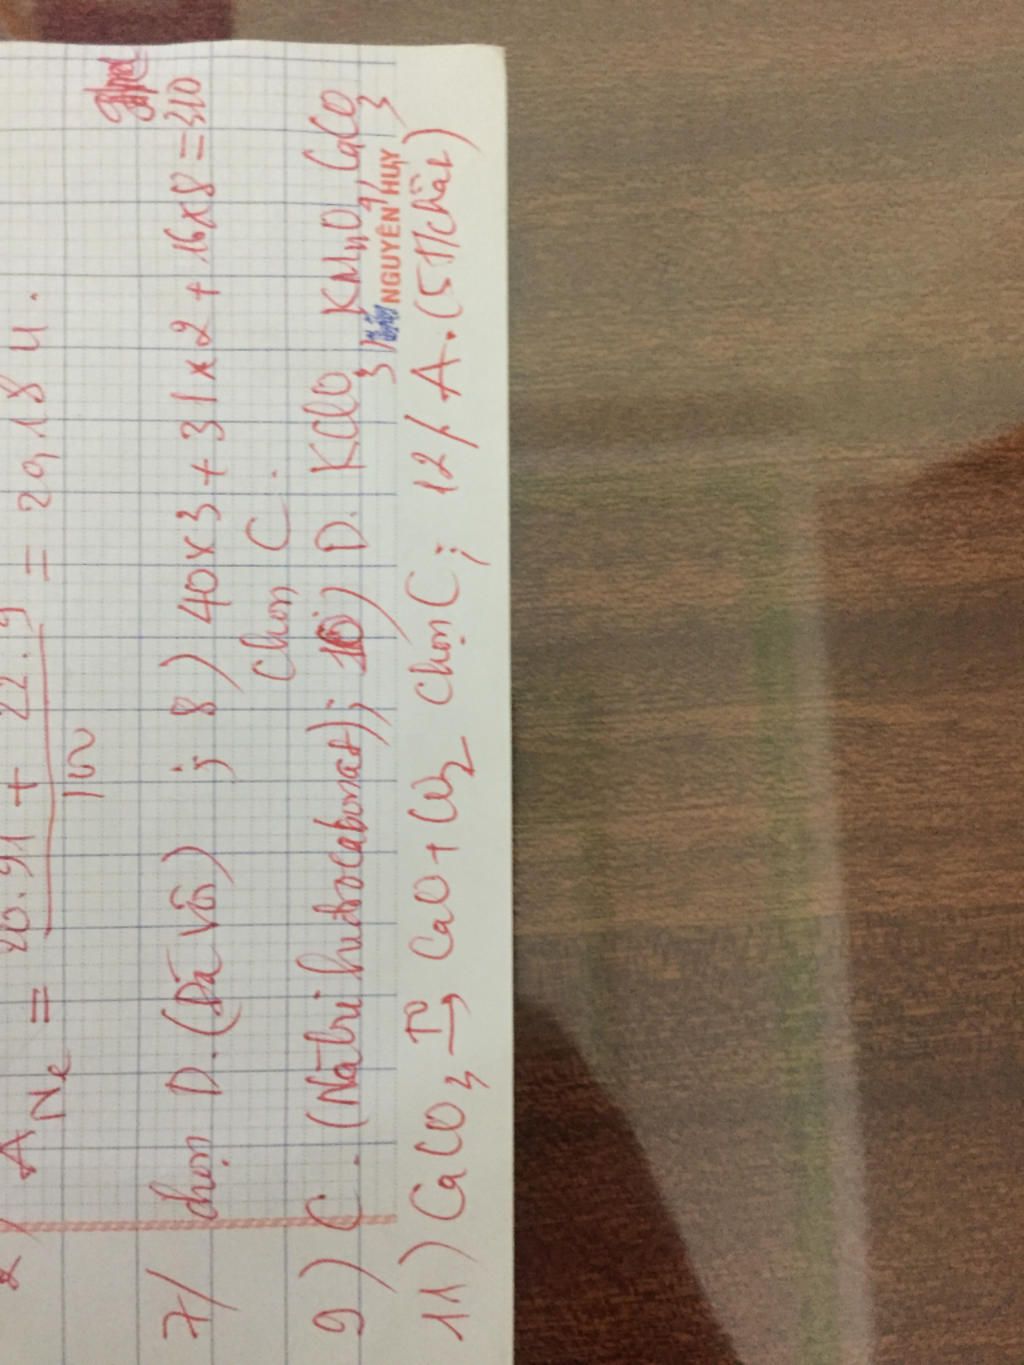 A Ne = 20.91 + 22.9 / 100 = 20,18 u.
7/ chọn D. (Đá vôi) ; 8) 40x3 + 31x2 + 16x8 = 310
Chọn C.
9) C. (Natri hidrocacbonat); 10) D. KClO3, KMnO4, CaCO3
NGUYÊN HUY
11) CaCO3 T° → CaO + CO2 chọn C; 12/ A. (5 T/chất)